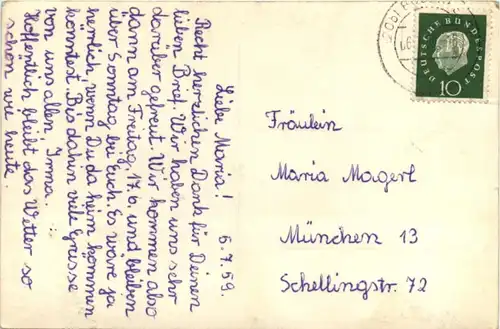 6.7.59.
Liebe Maria!
Recht herzlichen Dank für Deinen
lieben Brief. Wir haben uns sehr
darüber gefreut. Wir kommen also
dann am Freitag, 17.6. und bleiben
über Sonntag bei Euch. Es wäre ja
herrlich, wenn Du da heim kommen
könntest. Bis dahin viele Grüsse
von uns allen Irma.
Hoffentlich bleibt das Wetter so
schön wie heute.
DEUTSCHE BUNDESPOST
10
Fräulein
Maria Magerl
München 13
Schellingstr. 72